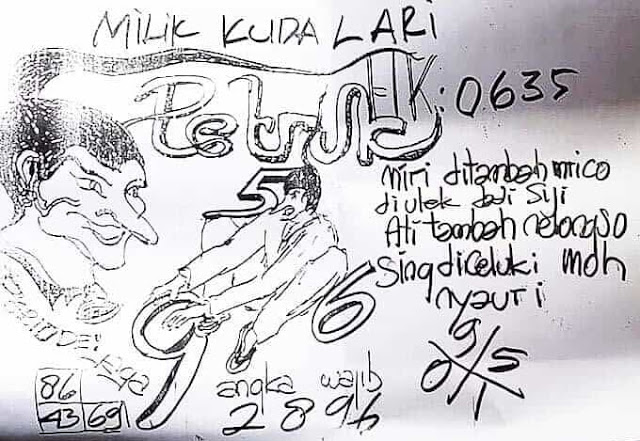 MILIK KUDA LARI
Petruk
HK: 0635
miri ditambah mrico
diulek dadi siji
Ati tambah nelongso
Sing diceluki moh
nyauri
5
9
6
9
0 5
1
86
43 69
angka wajib
2896